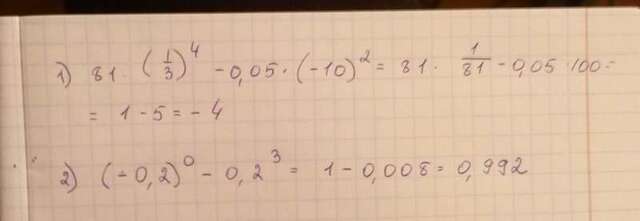 1) 81 · (1/3)^4 - 0,05 · (-10)^2 = 81 · 1/81 - 0,05 · 100 =
= 1 - 5 = - 4
2) (-0,2)^0 - 0,2^3 = 1 - 0,008 = 0,992